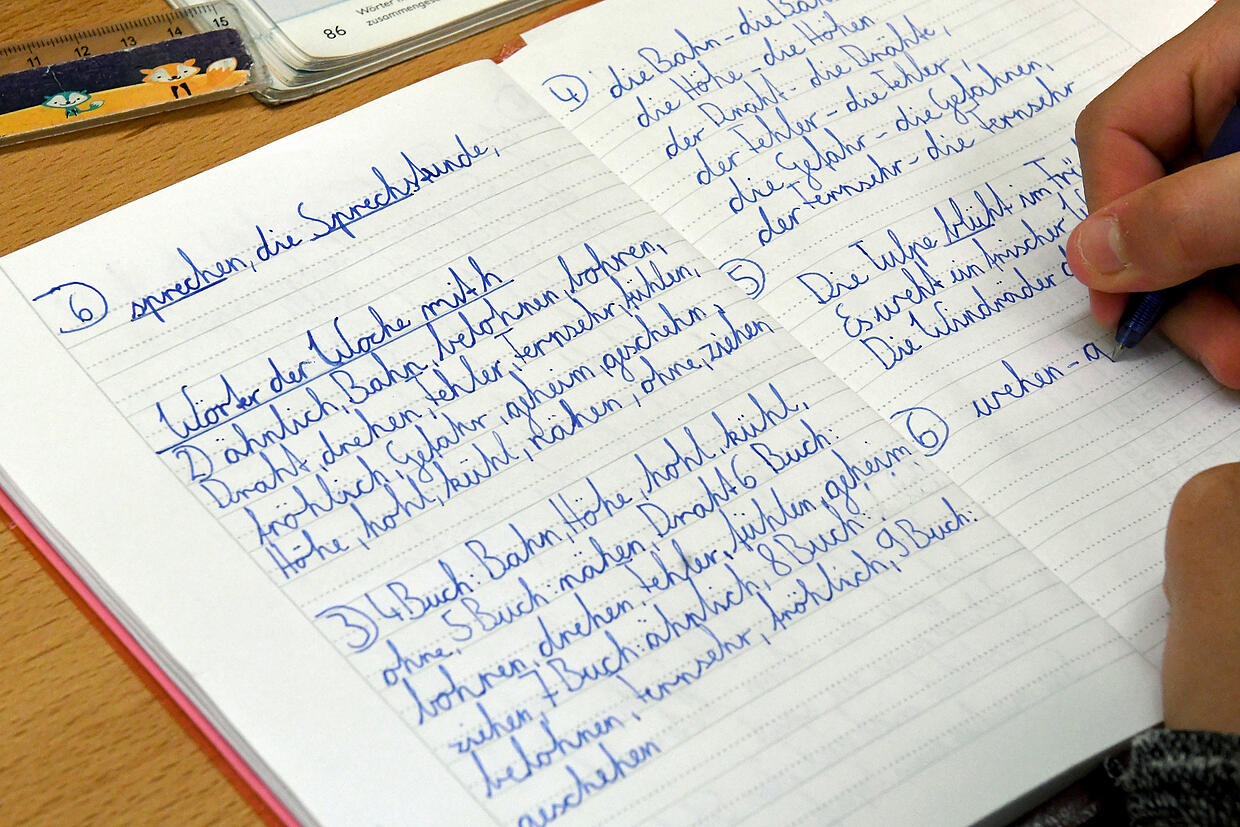 11 12 13 14 15
86
Wörter
6 sprechen, die Sprechstunde,
Wörter der Woche mit h
2) ähnlich, Bahn, belohnen, bohren,
Draht, drehen, Fehler, Fernsehr, fühlen,
fröhlich, Gefahr, geheim, geschehn
Höhe, hohl, kühl, nähen, ohne, ziehen
3) 4 Buch: Bahn, Höhe, hohl, kühl,
ohne, 5 Buch: nähen, Draht 6 Buch:
bohren, drehen, Fehler, fühlen, geheim
ziehen, 7 Buch: ähnlich, 8 Buch:
belohnen, Fernsehr, fröhlich, 9 Buch:
geschehen
4 die Bahn - die Bah
die Höhe - die Höhen
der Draht - die Drähte,
der Fehler - die Fehler,
die Gefahr - die Gefahren,
der Fernsehr - die Fernsehr
5 Die Tulpe blüht im Frü
Es weht ein frischer
Die Windräder d
6 wehen -